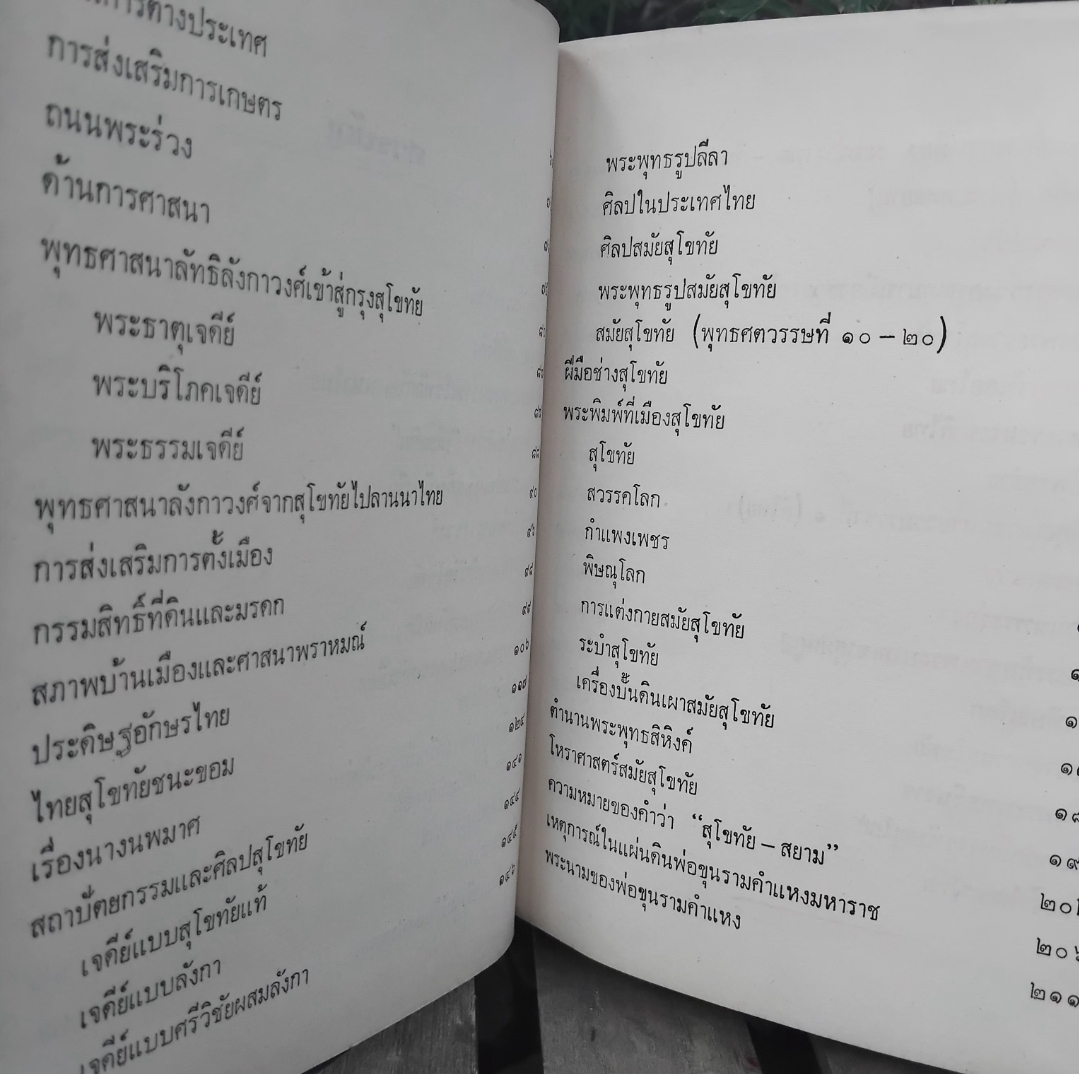 การต่างประเทศ
การส่งเสริมการเกษตร
ถนนพระร่วง
ด้านการศาสนา
พุทธศาสนาลัทธิลังกาวงศ์เข้าสู่กรุงสุโขทัย
พระธาตุเจดีย์
พระบริโภคเจดีย์
พระธรรมเจดีย์
พุทธศาสนาลังกาวงศ์จากสุโขทัยไปลานนาไทย ๙๐
การส่งเสริมการตั้งเมือง
กรรมสิทธิ์ที่ดินและมรดก
สภาพบ้านเมืองและศาสนาพราหมณ์
ประดิษฐอักษรไทย
ไทยสุโขทัยชนะขอม
เรื่องนางนพมาศ
สถาปัตยกรรมและศิลปสุโขทัย
เจดีย์แบบสุโขทัยแท้
เจดีย์แบบลังกา
เจดีย์แบบศรีวิชัยผสมลังกา
พระพุทธรูปลีลา
ศิลปในประเทศไทย
ศิลปสมัยสุโขทัย
พระพุทธรูปสมัยสุโขทัย
สมัยสุโขทัย (พุทธศตวรรษที่ ๑๐ – ๒๐)
ฝีมือช่างสุโขทัย
พระพิมพ์ที่เมืองสุโขทัย
สุโขทัย
สวรรคโลก
กำแพงเพชร
พิษณุโลก
การแต่งกายสมัยสุโขทัย
ระบำสุโขทัย
เครื่องปั้นดินเผาสมัยสุโขทัย
ตำนานพระพุทธสิหิงค์
โหราศาสตร์สมัยสุโขทัย
ความหมายของคำว่า “สุโขทัย – สยาม”
เหตุการณ์ในแผ่นดินพ่อขุนรามคำแหงมหาราช
พระนามของพ่อขุนรามคำแหง